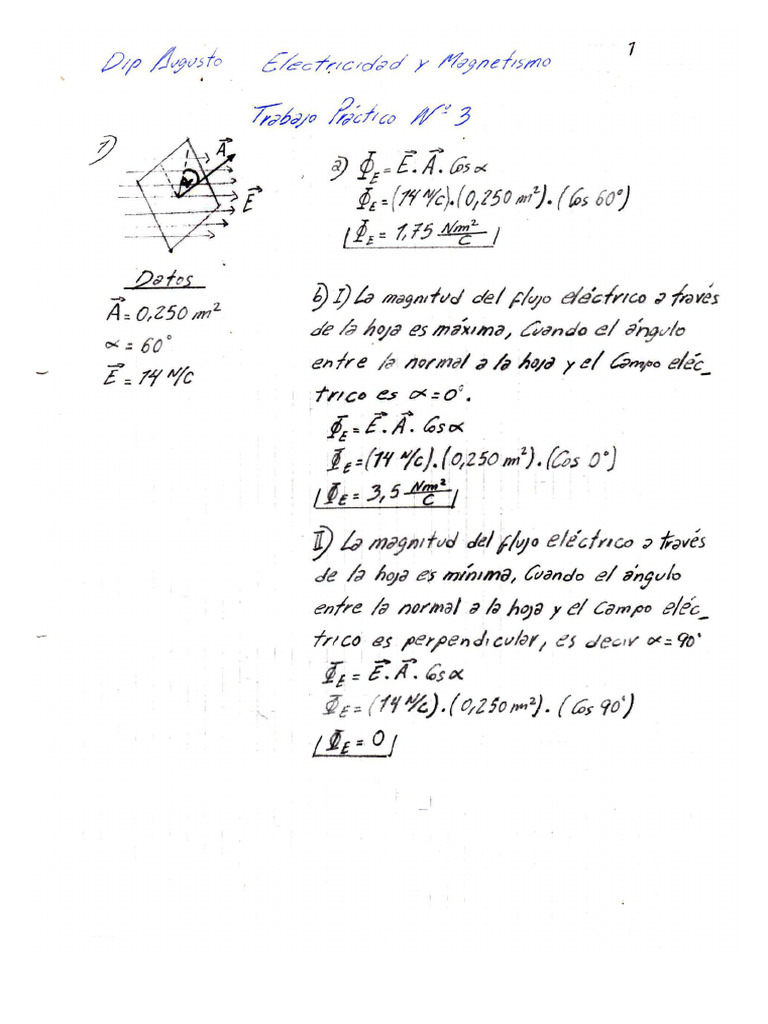 1
Dip Augusto Electricidad y Magnetismo
Trabajo Práctico Nº 3
1)
A⃗
α
E⃗
Datos
A⃗ = 0,250 m²
α = 60°
E⃗ = 14 N/C
a) Φ_E = E⃗ . A⃗ . Cos α
Φ_E = (14 N/C).(0,250 m²).(Cos 60°)
Φ_E = 1,75 Nm²/C
b) I) La magnitud del flujo eléctrico a través
de la hoja es máxima, Cuando el ángulo
entre la normal a la hoja y el Campo eléc_
trico es α = 0°.
Φ_E = E⃗ . A⃗ . Cos α
Φ_E = (14 N/C).(0,250 m²).(Cos 0°)
Φ_E = 3,5 Nm²/C
II) La magnitud del flujo eléctrico a través
de la hoja es mínima, Cuando el ángulo
entre la normal a la hoja y el Campo eléc_
trico es perpendicular, es decir α = 90°
Φ_E = E⃗ . A⃗ . Cos α
Φ_E = (14 N/C).(0,250 m²).(Cos 90°)
Φ_E = 0